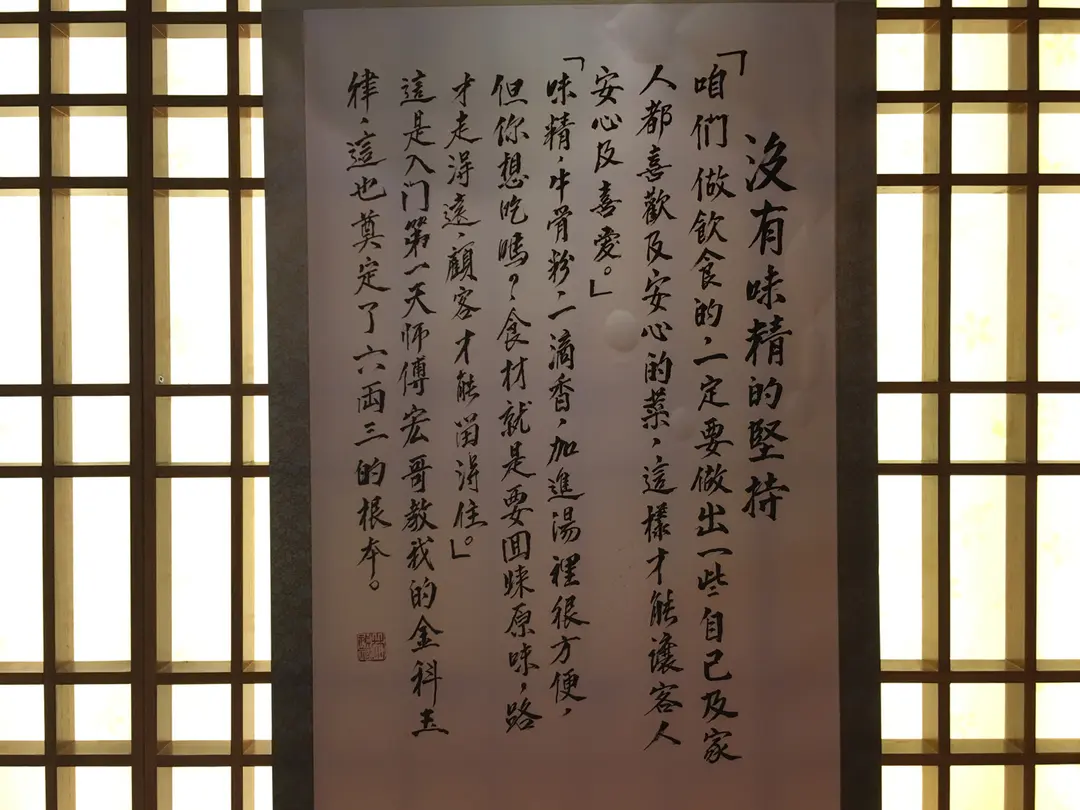 沒有味精的堅持
「咱們做飲食的，一定要做出一些自己及家
人都喜歡及安心的菜，這樣才能讓客人
安心及喜愛。」
「味精，牛骨粉，一滴香，加進湯裡很方便，
但你想吃嗎？，食材就是要回味原味，路
才走得遠，顧客才能留得住。」
這是入门第一天师傅宏哥教我的金科玉
律，這也奠定了六兩三的根本。